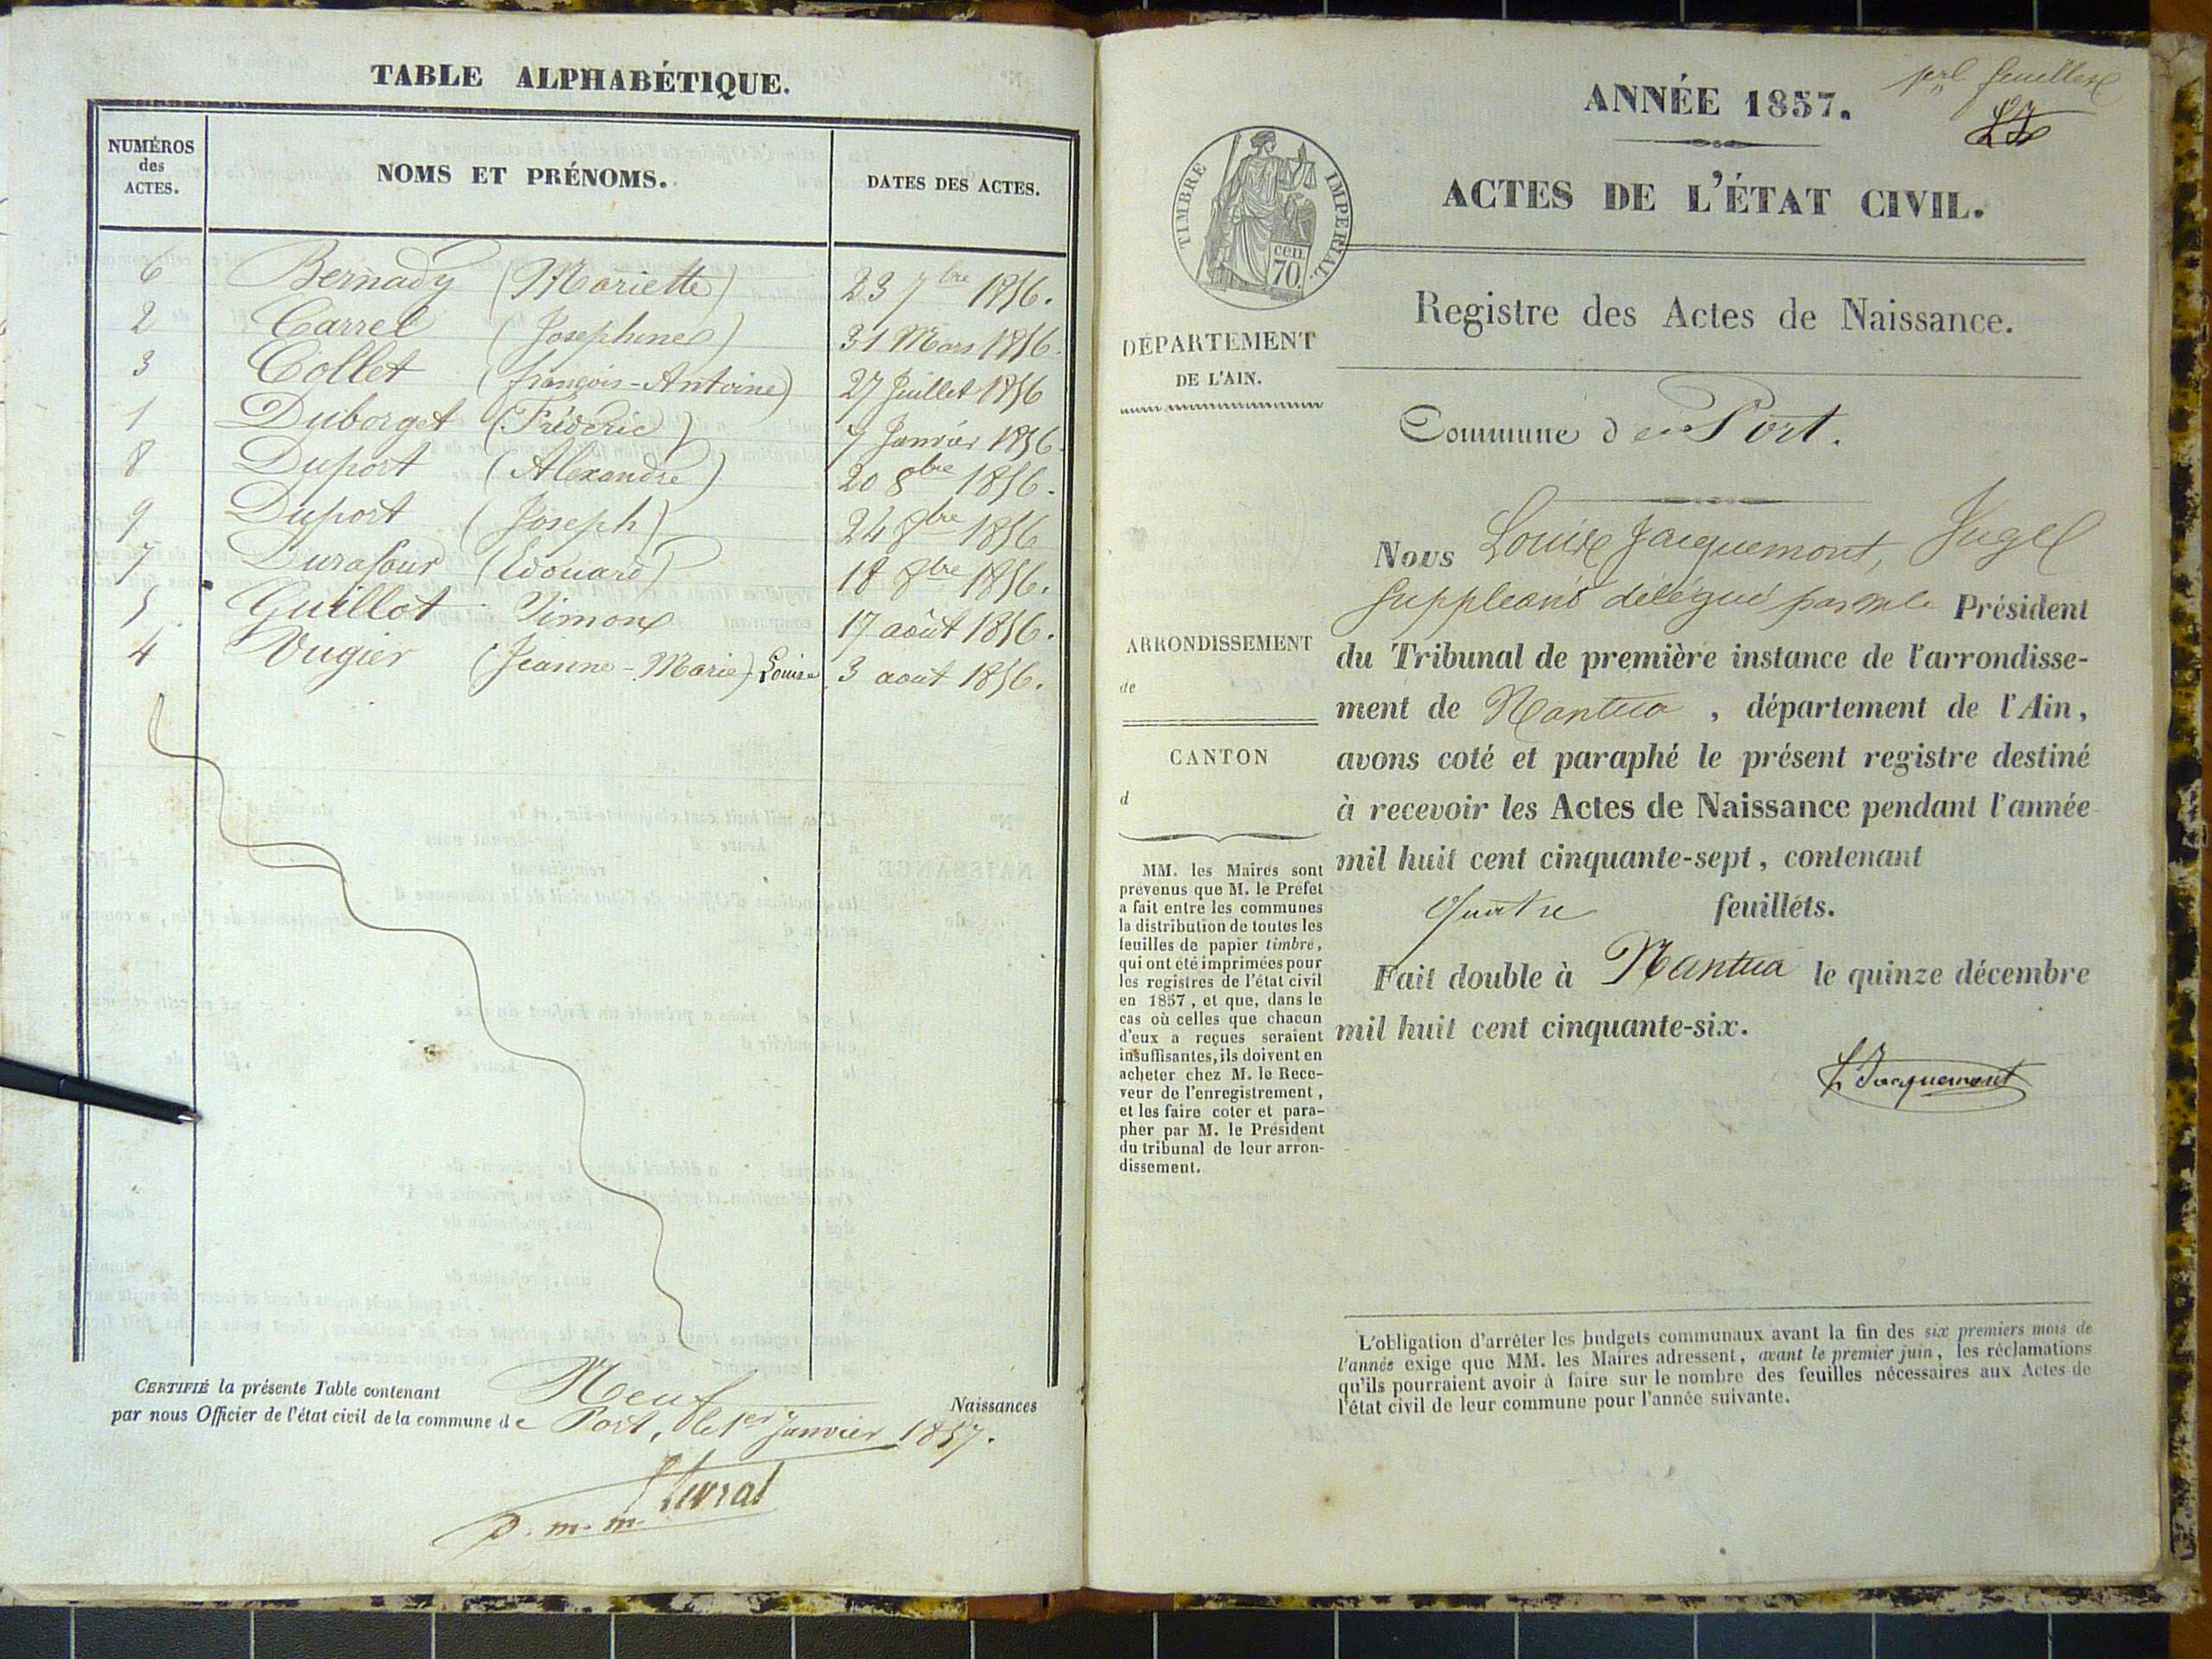 TABLE ALPHABÉTIQUE.
NUMÉROS des ACTES.
NOMS ET PRÉNOMS.
DATES DES ACTES.
6 Bernady (Mariette) 23 7bre 1856.
2 Carrel (Josephine) 31 Mars 1856.
3 Collet (françois-Antoine) 27 Juillet 1856
1 Duborget (Fréderic) 7 Janvier 1856.
8 Duport (Alexandre) 20 8bre 1856.
9 Duport (Joseph) 24 8bre 1856
7 Durafour (Edouard) 18 8bre 1856.
5 Guillot Simon 17 août 1856.
4 Vugier (Jeanne-Marie) Louise 3 aout 1856.
CERTIFIÉ la présente Table contenant Neuf Naissances
par nous Officier de l'état civil de la commune de Port, le 1er Janvier 1857.
D. m. m.
ANNÉE 1857.
feuillet
ACTES DE L'ÉTAT CIVIL.
TIMBRE IMPERIAL.
cen.
70.
Registre des Actes de Naissance.
DÉPARTEMENT
DE L'AIN.
Commune de Port.
ARRONDISSEMENT
de
CANTON
d
MM. les Maires sont
prévenus que M. le Préfet
a fait entre les communes
la distribution de toutes les
feuilles de papier timbré,
qui ont été imprimées pour
les registres de l'état civil
en 1857, et que, dans le
cas où celles que chacun
d'eux a reçues seraient
insuffisantes, ils doivent en
acheter chez M. le Rece-
veur de l'enregistrement,
et les faire coter et para-
pher par M. le Président
du tribunal de leur arron-
dissement.
Nous Louis Jacquemont, Juge
Suppleant délégué par M. le Président
du Tribunal de première instance de l'arrondisse-
ment de Nantua, département de l'Ain,
avons coté et paraphé le présent registre destiné
à recevoir les Actes de Naissance pendant l'année
mil huit cent cinquante-sept, contenant
Quatre feuillets.
Fait double à Nantua le quinze décembre
mil huit cent cinquante-six.
L Jacquemont
L'obligation d'arrêter les budgets communaux avant la fin des six premiers mois de
l'année exige que MM. les Maires adressent, avant le premier juin, les réclamations
qu'ils pourraient avoir à faire sur le nombre des feuilles nécessaires aux Actes de
l'état civil de leur commune pour l'année suivante.